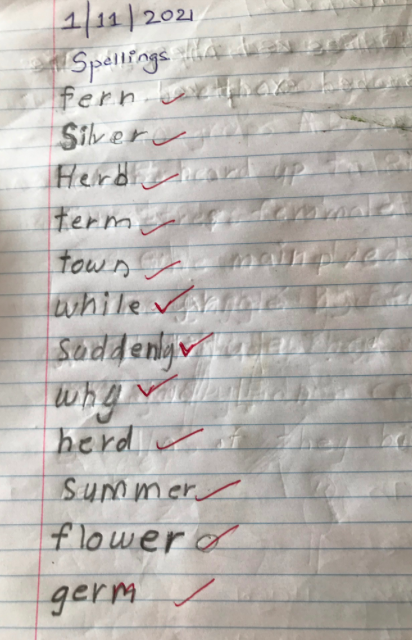 1/11/2021
Spellings
fern
Silver
Herb
term
town
while
suddenly
why
herd
summer
flower
germ